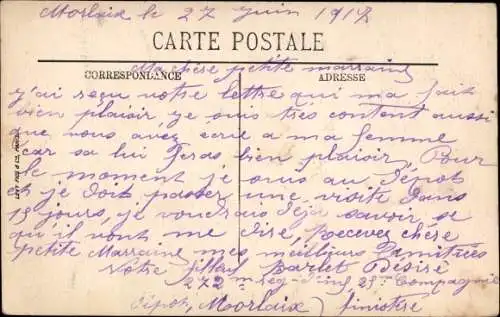 Morlaix le 27 juin 1917
CARTE POSTALE
Ma chère petite marraine
CORRESPONDANCE ADRESSE
j'ai reçu votre lettre qui ma fait
bien plaisir, je suis très content aussi
que vous avez ecrie a ma femme
car sa lui feras, bien plaisir, Pour
le moment je suis au Dépot
et je doit passer une visite dans
15 jours, je voudrais déja savoir se
qu'il vont me dire, recevez chére
petite Marraine mes meilleurs Damitiées
Votre filleul Barlet Désiré
272me reg- d'inf, 25me Compagnie
Dépot, Morlaix) finistère